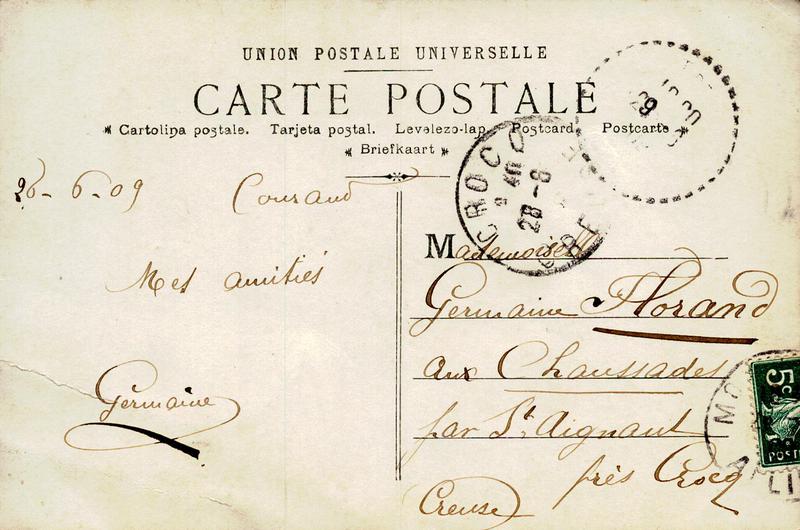 UNION POSTALE UNIVERSELLE
CARTE POSTALE
Cartolina postale. Tarjeta postal. Levelezo-lap. Postcard. Postcarte
Briefkaart
CROCQ
28-6
CREUSE
26-6-09 Couraud
Mes amitiés
Germaine
Mademoiselle
Germaine Florand
aux Chaussades
par St. Aignant
près Crocq
Creuse
5c
POSTE